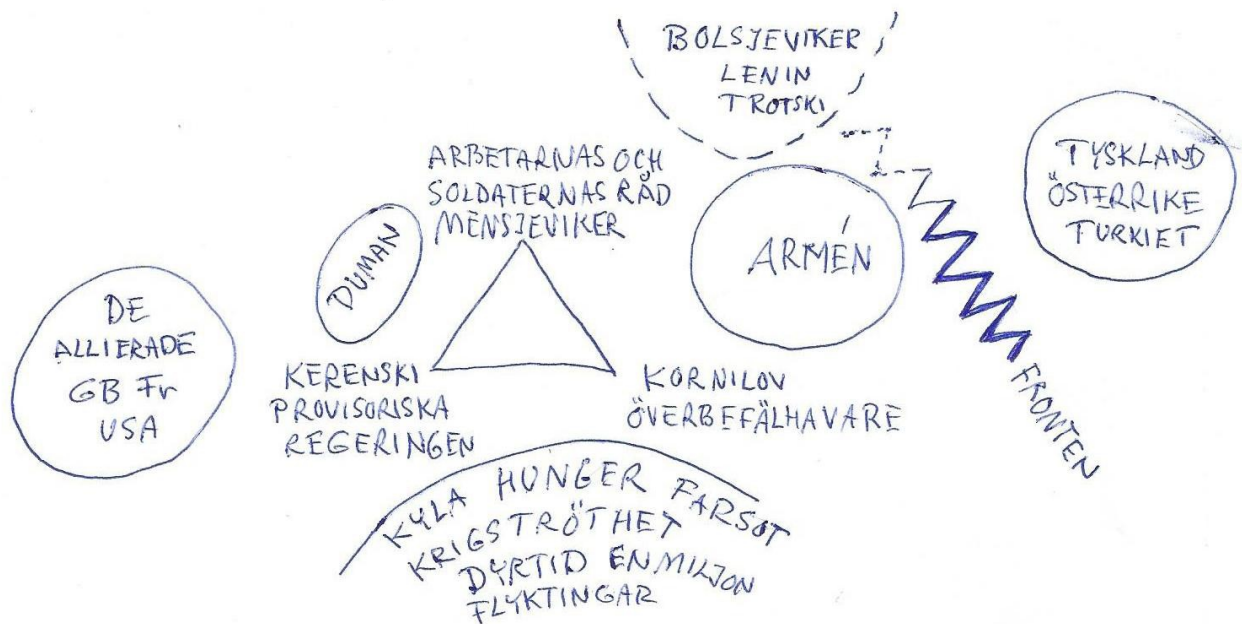 BOLSJEVIKER
LENIN
TROTSKI
TYSKLAND
ÖSTERRIKE
TURKIET
ARBETARNAS OCH
SOLDATERNAS RÅD
MENSJEVIKER
DUMAN
ARMÉN
DE
ALLIERADE
GB Fr
USA
KERENSKI
PROVISORISKA
REGERINGEN
KORNILOV
ÖVERBEFÄLHAVARE
FRONTEN
KYLA HUNGER FARSOT
KRIGSTRÖTHET
DYRTID EN MILJON
FLYKTINGAR